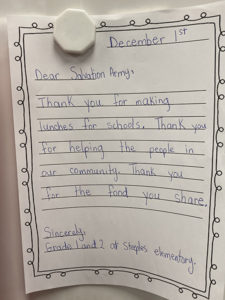 December 1st
Dear Salvation Army,
Thank you for making
lunches for schools. Thank you
for helping the people in
our community. Thank you
for the food you share.
Sincerely,
Grade 1 and 2 at Steeples elementary.